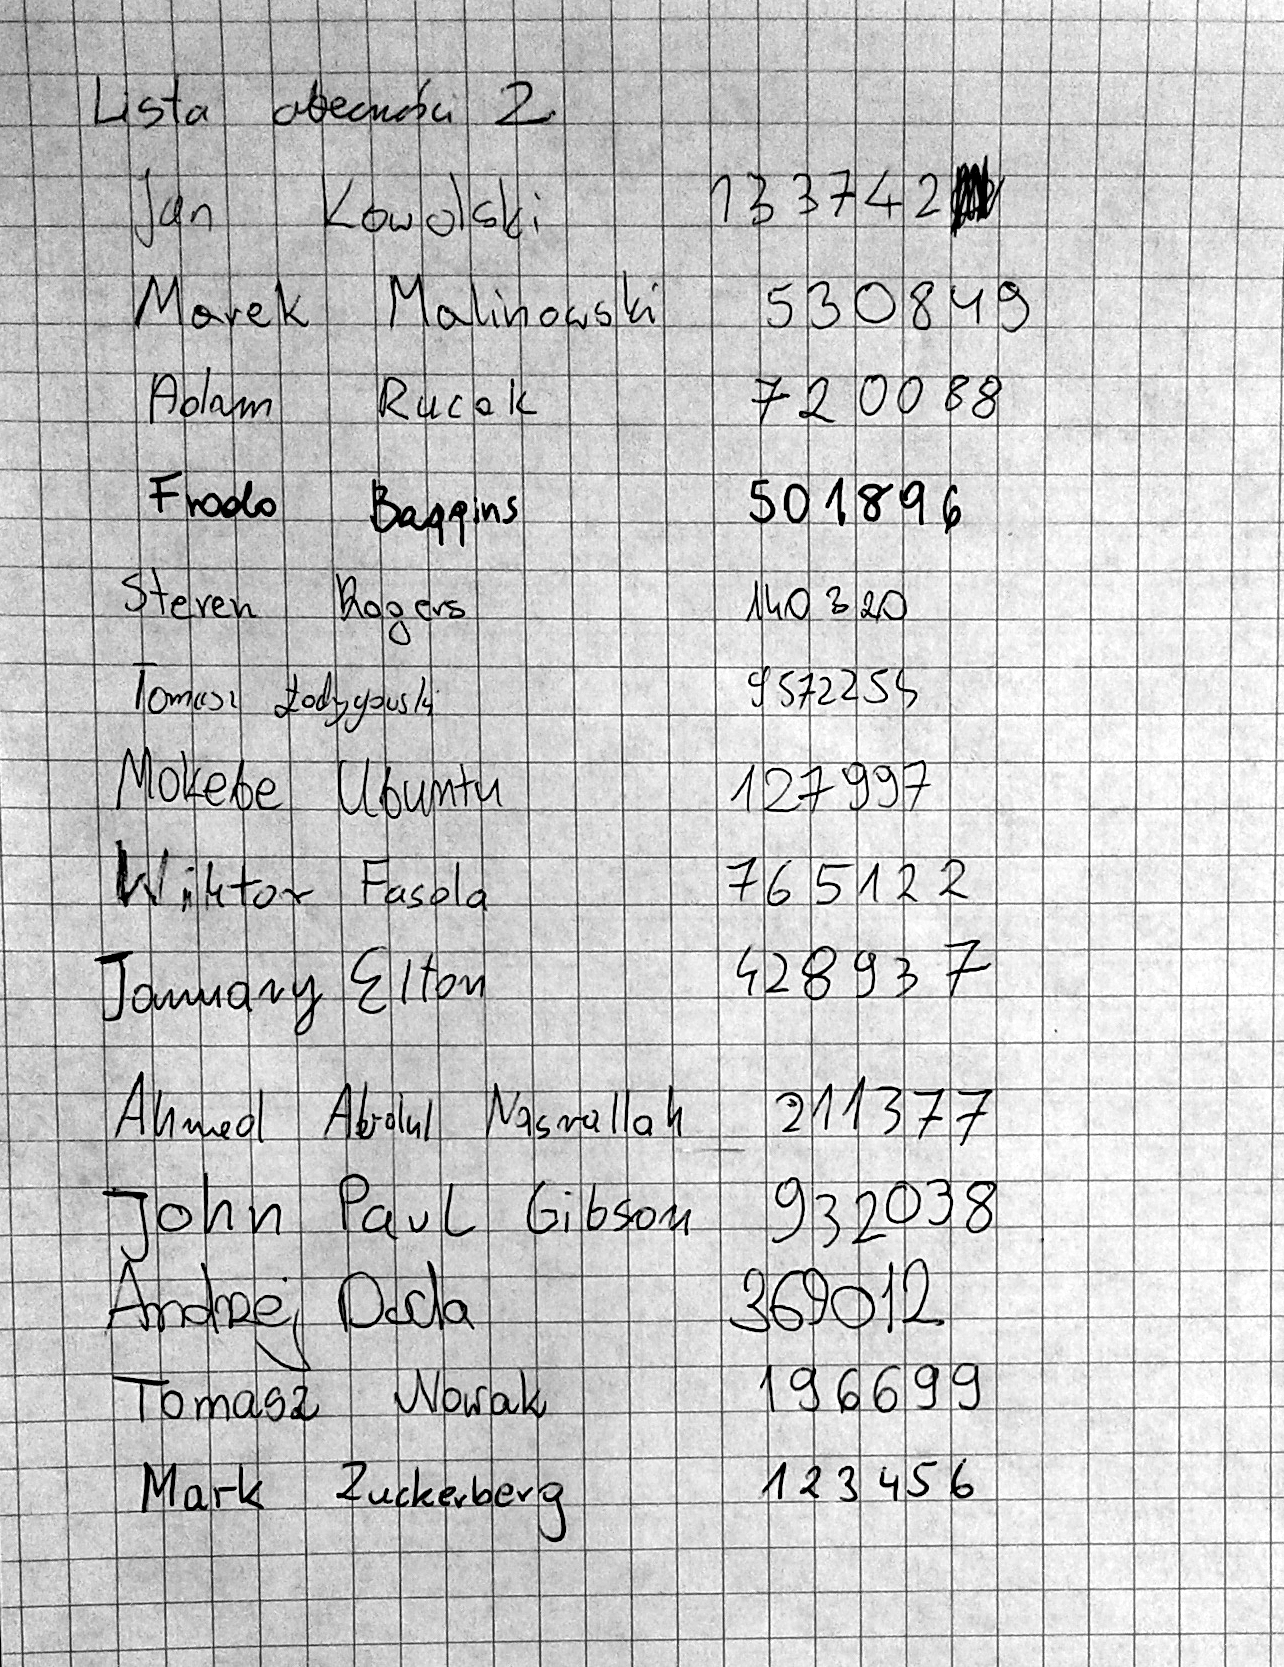 Lista obecności 2
Jan Kowalski 133742
Marek Malinowski 530849
Adam Rucak 720088
Frodo Baggins 501896
Steven Rogers 140320
Tomasz 9572255
Mokebe Ubuntu 127997
Wiktor Fasola 765122
January Elton 428937
Ahmed Abdul Nasrallah 211377
John Paul Gibson 932038
Andrzej Duda 369012
Tomasz Nowak 196699
Mark Zuckerberg 123456